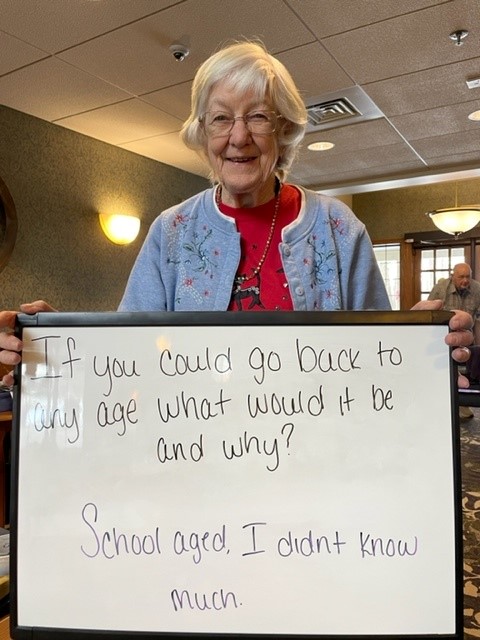 If you could go back to
any age what would it be
and why?
School aged, I didnt know
much.